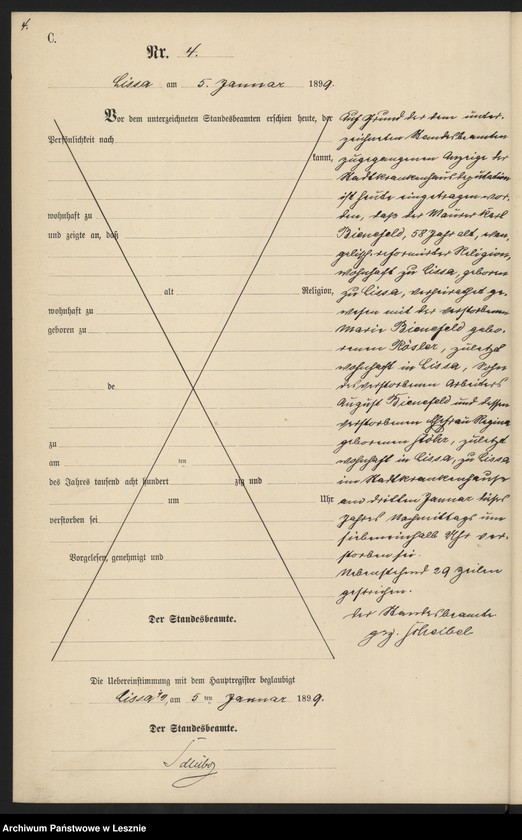 4.
C.
Nr. 4.
Lissa am 5. Januar 1899.
Vor dem unterzeichneten Standesbeamten erschien heute, der
Persönlichkeit nach
kannt,
wohnhaft zu
und zeigte an, daß
alt Religion,
wohnhaft zu
geboren zu
de
zu
am ten
des Jahres tausend acht hundert zig und
um Uhr
verstorben sei
Vorgelesen, genehmigt und
Der Standesbeamte.
Auf Grund der dem unter-
zeichneten Standesbeamten
zugegangenen Anzeige der
Stadtkrankenhausdeputation
ist heute eingetragen wor-
den, daß der Maurer Karl
Bienefeld, 58 Jahr alt, evan-
gelisch-reformirter Religion,
wohnhaft zu Lissa, geboren
zu Lissa, verheirathet ge-
wesen mit der verstorbenen
Marie Bienefeld gebo-
renen Rösler, zuletzt
wohnhaft in Lissa, Sohn
des verstorbenen Arbeiters
August Bienefeld und dessen
verstorbenen Ehefrau Regina
geborenen Stöhr, zuletzt
wohnhaft in Lissa, zu Lissa
im Stadtkrankenhause
am dritten Januar dieses
Jahres Nachmittags um
siebeneinhalb Uhr ver-
storben sei.
Nebenstehend 29 Zeilen
gestrichen.
Der Standesbeamte
gez. Scheibel
Die Uebereinstimmung mit dem Hauptregister beglaubigt
Lissa, am 5 ten Januar 1899.
Der Standesbeamte.
Archiwum Państwowe w Lesznie